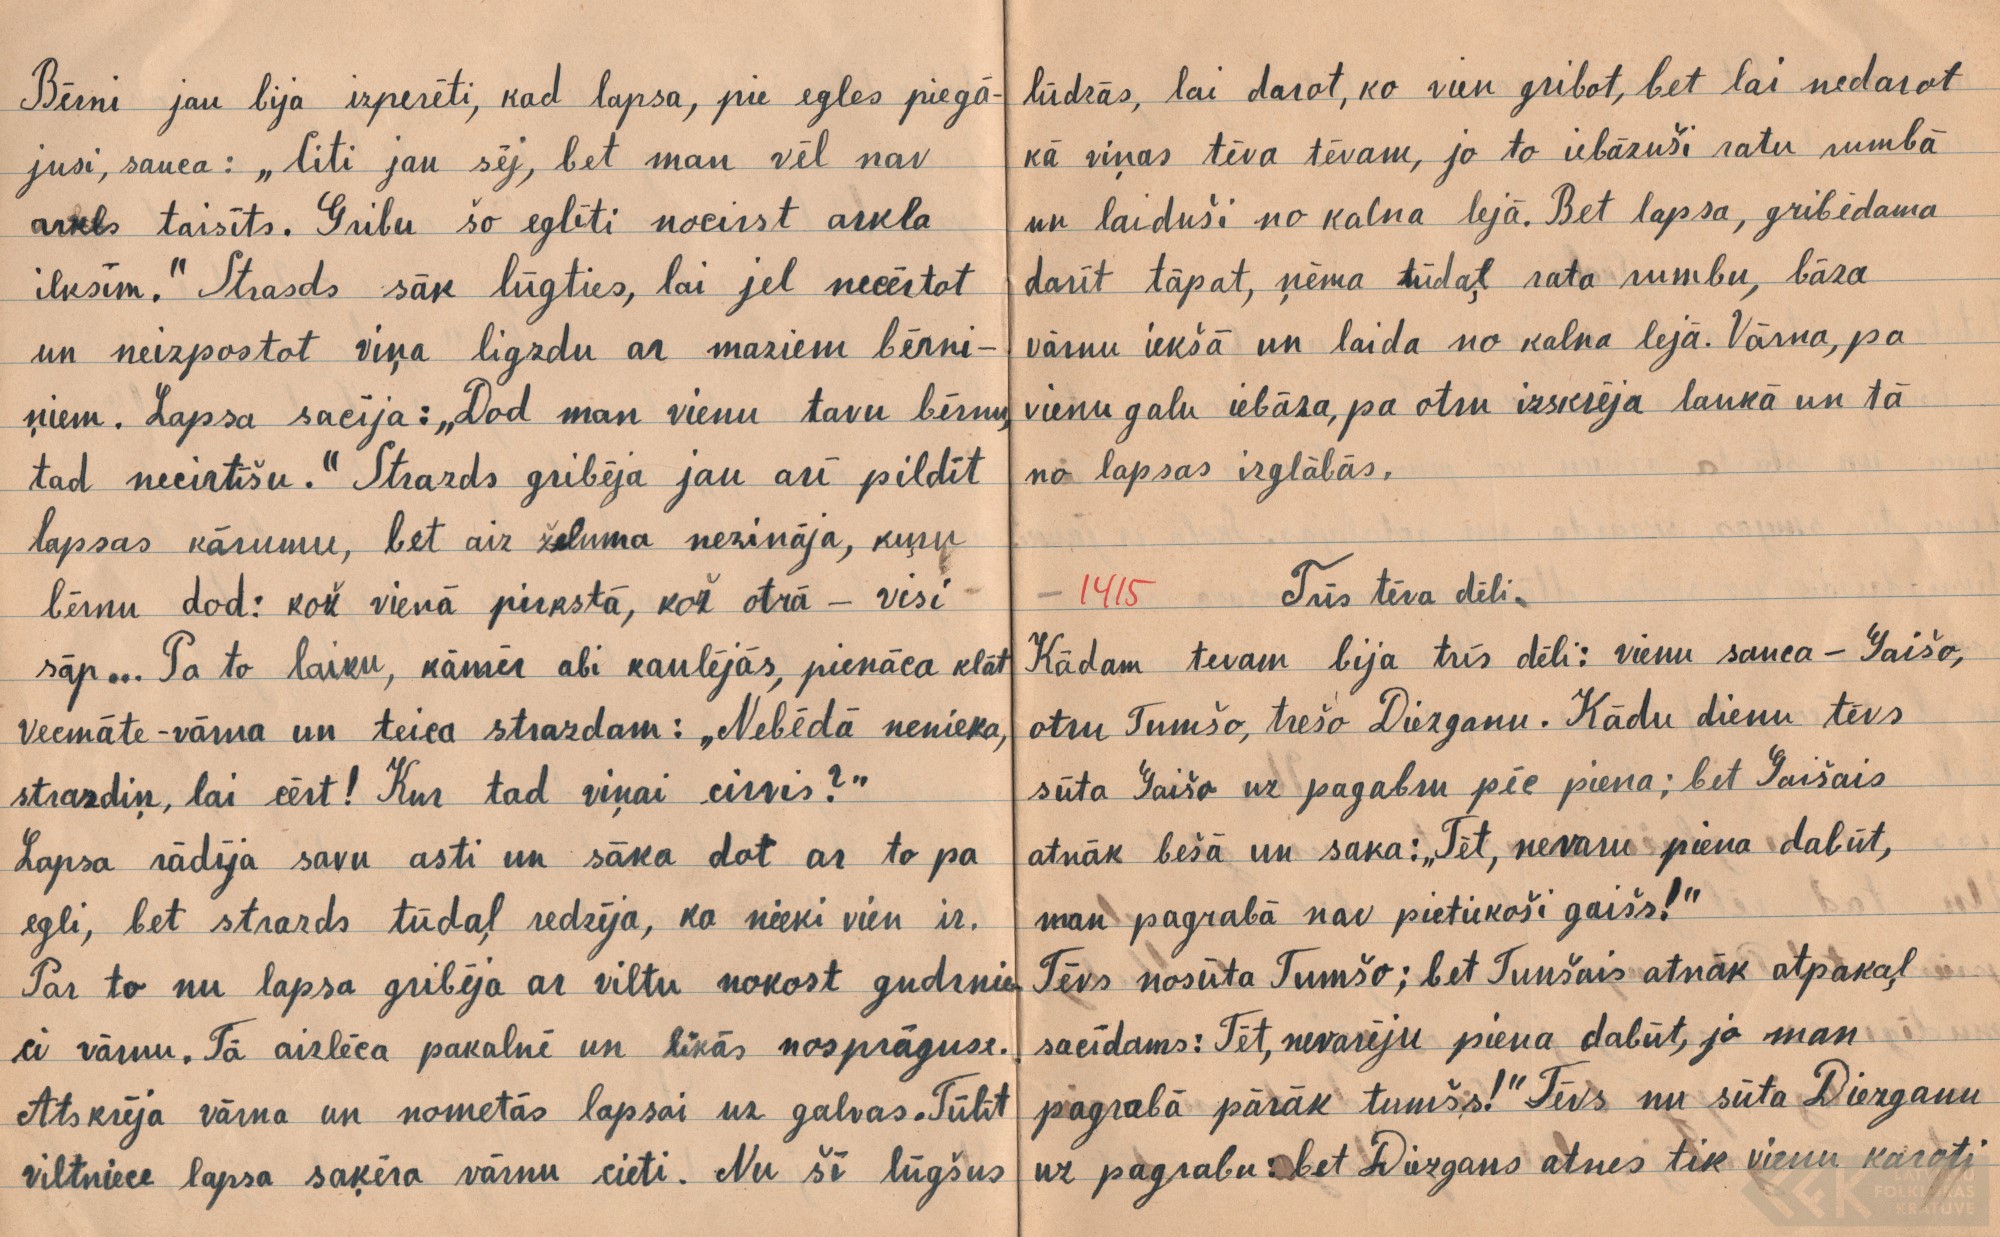 Bērni jau bija izperēti, kad lapsa, pie egles piegā-
jusi, sauca: „Citi jau sēj, bet man vēl nav
arkls taisīts. Gribu šo eglīti nocirst arkla
ilksīm." Strasds sāk lūgties, lai jel necērtot
un neizpostot viņa ligzdu ar maziem bērni-
ņiem. Lapsa sacīja: „Dod man vienu tavu bērnu,
tad necirtīšu." Strazds gribēja jau arī pildīt
lapsas kārumu, bet aiz želuma nezināja, kuŗu
bērnu dod: kož vienā pirkstā, kož otrā – visi
sāp... Pa to laiku, kāmēr abi kaulējās, pienāca klāt
vecmāte-vārna un teica strazdam: „Nebēdā nenieka,
strazdiņ, lai cērt! Kur tad viņai cirvis?"
Lapsa rādīja savu asti un sāka dot ar to pa
egli, bet strazds tūdaļ redzēja, ka nieki vien ir.
Par to nu lapsa gribēja ar viltu nokost gudrnie-
ci vārnu. Tā aizlēca pakalnē un likās nosprāguse.
Atskrēja vārna un nometās lapsai uz galvas. Tūlīt
viltniece lapsa saķēra vārnu cieti. Nu šī lūgšus
lūdzās, lai darot, ko vien gribot, bet lai nedarot
kā viņas tēva tēvam, jo to iebāzuši ratu rumbā
un laiduši no kalna lejā. Bet lapsa, gribēdama
darīt tāpat, ņēma tūdaļ rata rumbu, bāza
vārnu iekšā un laida no kalna lejā. Vārna, pa
vienu galu iebāza, pa otru izskrēja laukā un tā
no lapsas izglābās.
– 1415 Trīs tēva dēli.
Kādam tevam bija trīs dēli: vienu sauca – Gaišo,
otru Tumšo, trešo Diezganu. Kādu dienu tēvs
sūta Gaišo uz pagabru pēc piena; bet Gaišais
atnāk bešā un saka: „Tēt, nevaru piena dabūt,
man pagrabā nav pietiekoši gaišs!"
Tēvs nosūta Tumšo; bet Tunšais atnāk atpakaļ
sacīdams: Tēt, nevarēju piena dabūt, jo man
pagrabā pārāk tumšs!" Tēvs nu sūta Diezganu
uz pagrabu: bet Diezgans atnes tik vienu karoti
LATVIEŠU
FOLKLORAS
KRĀTUVE